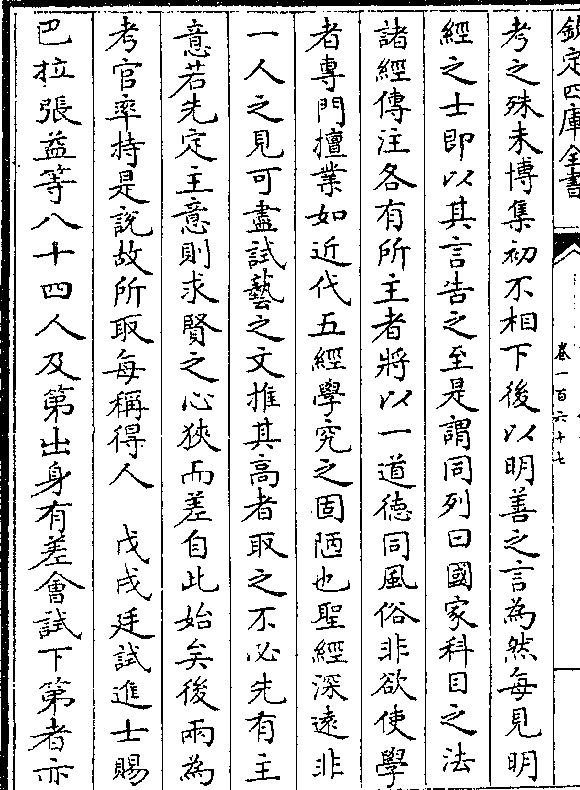 欽定四庫全書
卷一百六十七
考之殊未博集初不相下後以明善之言為然每見明
經之士即以其言告之至是謂同列曰國家科目之法
諸經傳注各有所主者將以一道徳同風俗非欲使學
者專門擅業如近代五經學究之固陋也聖經深逺非
一人之見可盡試藝之文推其髙者取之不必先有主
意若先定主意則求賢之心狹而差自此始矣後兩為
考官率持是説故所取每稱得人　戊戌廷試進士賜
巴拉張益等八十四人及第出身有差㑹試下第者亦